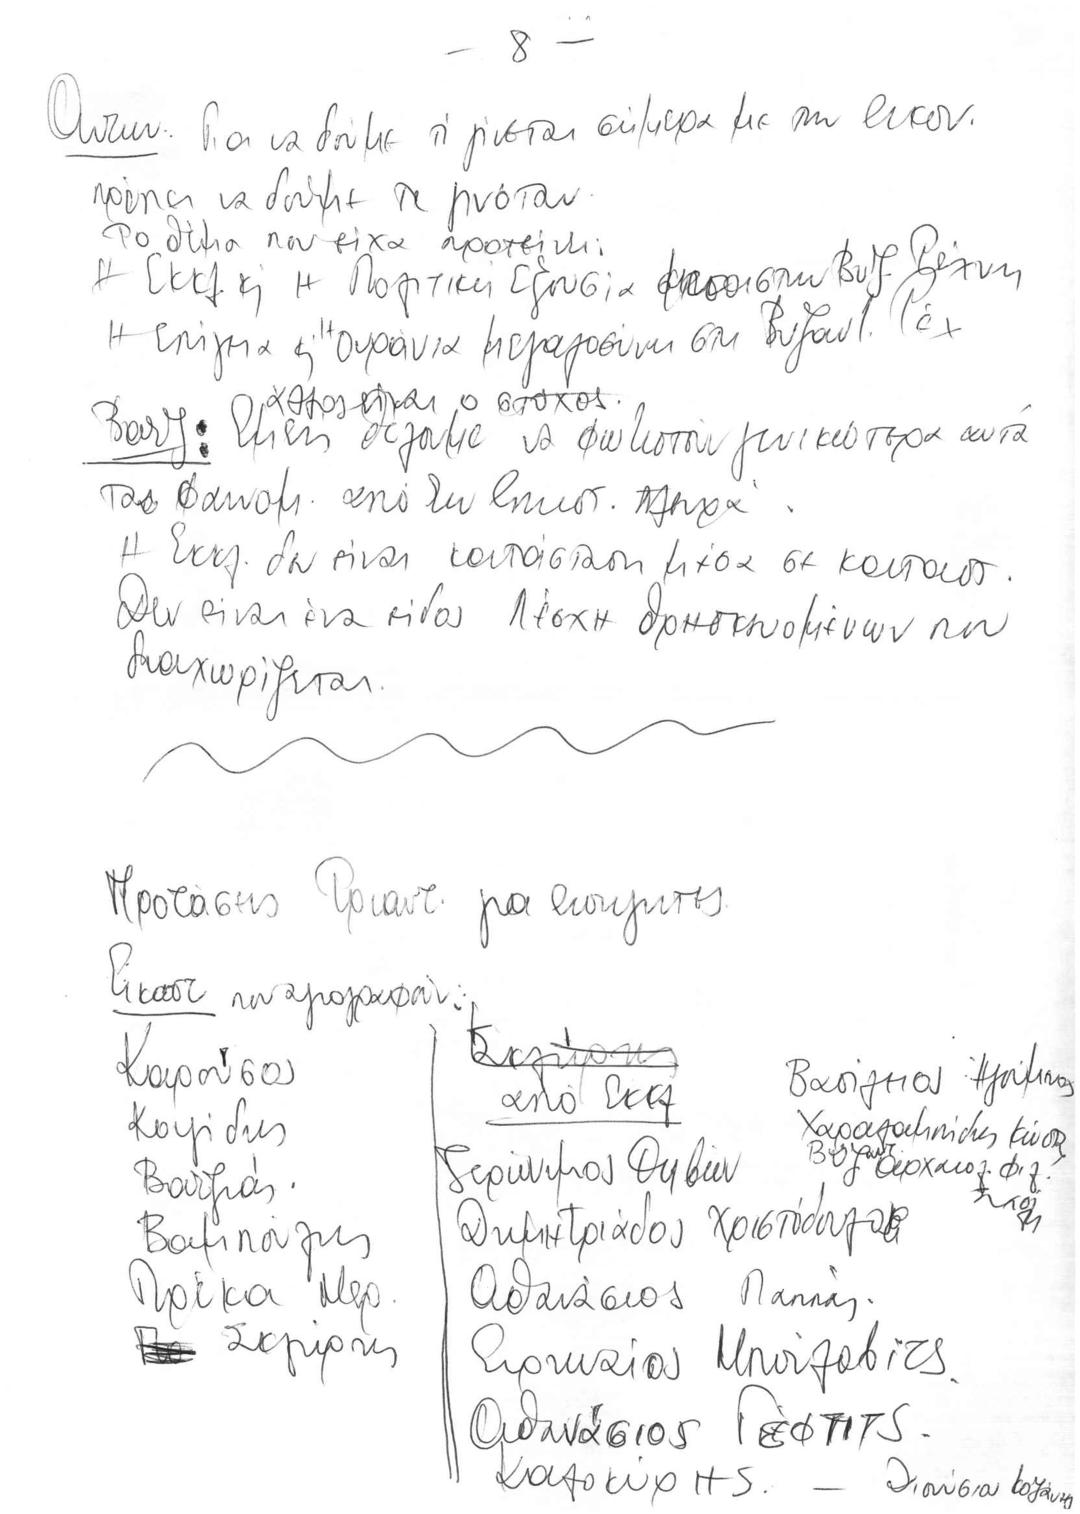 - 8 -
Για να δούμε τί γίνεται σήμερα με την εικον.
πρέπει να δούμε τι γινόταν.
Το θέμα που είχα προτείνει:
Η Εκκλ. κ Η Πολιτική Εξουσία στην Βυζ. Τέχνη
Η Επίγεια κ Η Ουράνια μεγαλοσύνη στη Βυζαντ. Τέχ
Άλλος είναι ο στόχος.
Βατζ: Εμείς θέλουμε να φωτιστούν γενικώτερα αυτά
τα φαινομ. από την επιστ. πλευρά.
Η Εκκλ. δεν είναι κατάσταση μέσα σε κατάστ.
Δεν είναι ένα είδος λέσχη θρησκευομένων που
διαχωρίζεται.
Προτάσεις Τριαντ. για εισηγητές
Εικαστ που αγιογραφούν:
Καρούσος
Κολίδης
Βατζιάς.
Βαμπούλης
Πρέκα Μερ.
Σκλήρης
Σκλήρης
από Εκκλ
Ιερώνυμος Θηβών
Δημητριάδος Χριστόδουλος
Αθανάσιος Παππάς.
Ειρηναίος Μπούλοβιτς.
Αθανάσιος Γέφτιτς.
Καλοκύρης. - Διονύσιος Κοζάνης
Βασίλειος Ηγούμενος
Χαραλαμπίδης Κώστ
Βυζαντ Αρχαιολ. Φιλ.